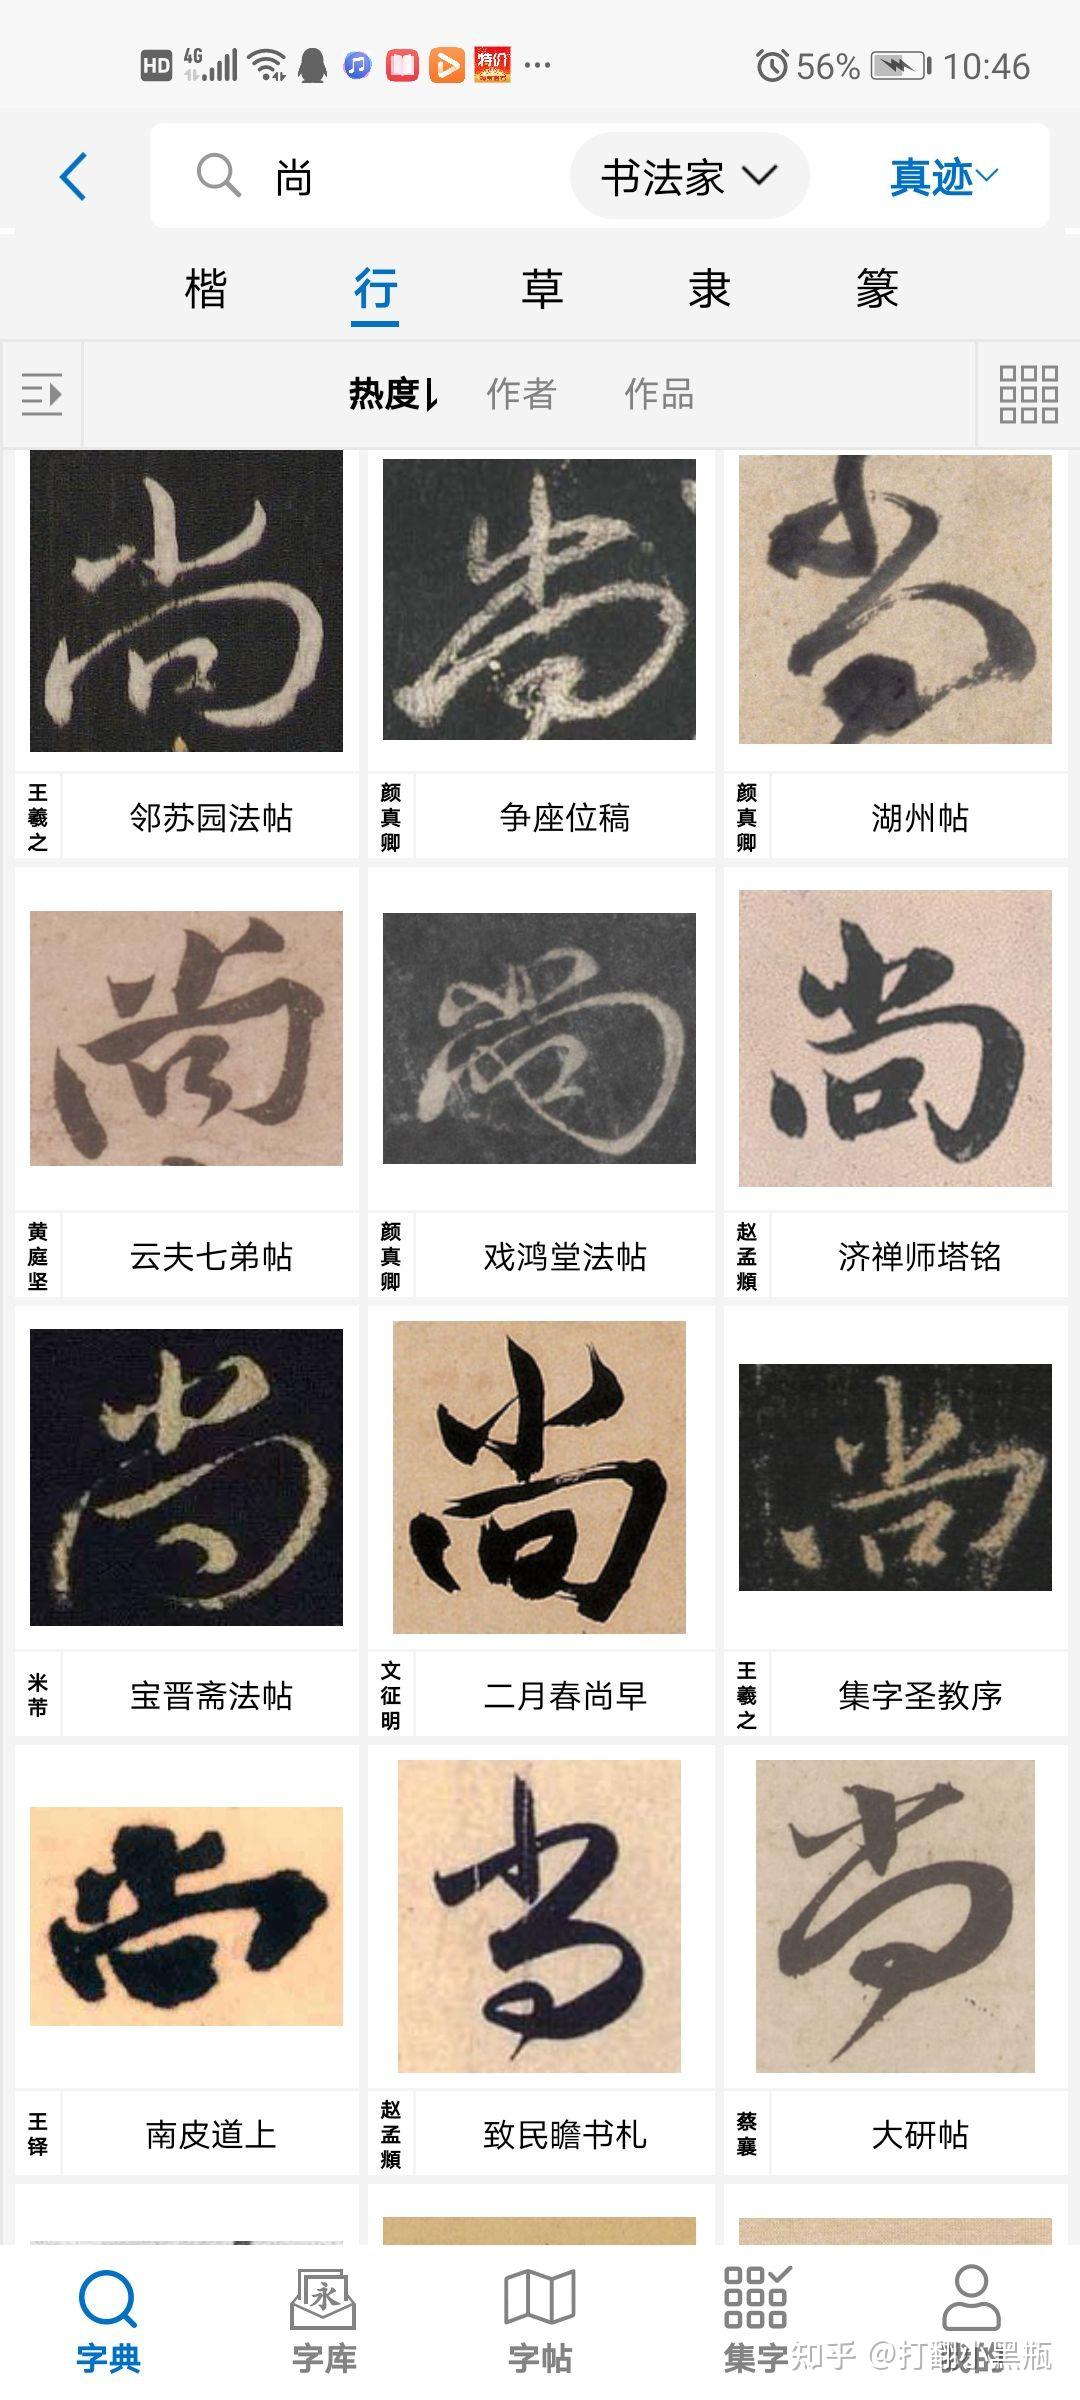 HD 4G 特价 ... 56% 10:46
尚 书法家 真迹
楷 行 草 隶 篆
热度 作者 作品
尚 尚 尚
王羲之 邻苏园法帖 颜真卿 争座位稿 颜真卿 湖州帖
尚 尚 尚
黄庭坚 云夫七弟帖 颜真卿 戏鸿堂法帖 赵孟頫 济禅师塔铭
尚 尚 尚
米芾 宝晋斋法帖 文征明 二月春尚早 王羲之 集字圣教序
尚 尚 尚
王铎 南皮道上 赵孟頫 致民瞻书札 蔡襄 大研帖
永
字典 字库 字帖 集字 我的
知乎 @打翻小黑瓶